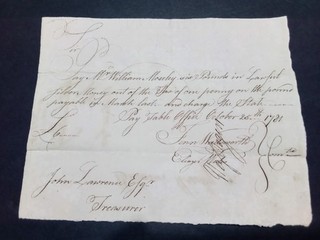 Sir,
Pay Mr. William Mosely six Pounds in Lawful
Silver Money out of the Tax of one penny on the pound
payable 1st March last and charge the State
£6
Pay Table Office October 26th 1781
Fenn Wadsworth
Comtee
John Lawrence Esqr
Treasurer